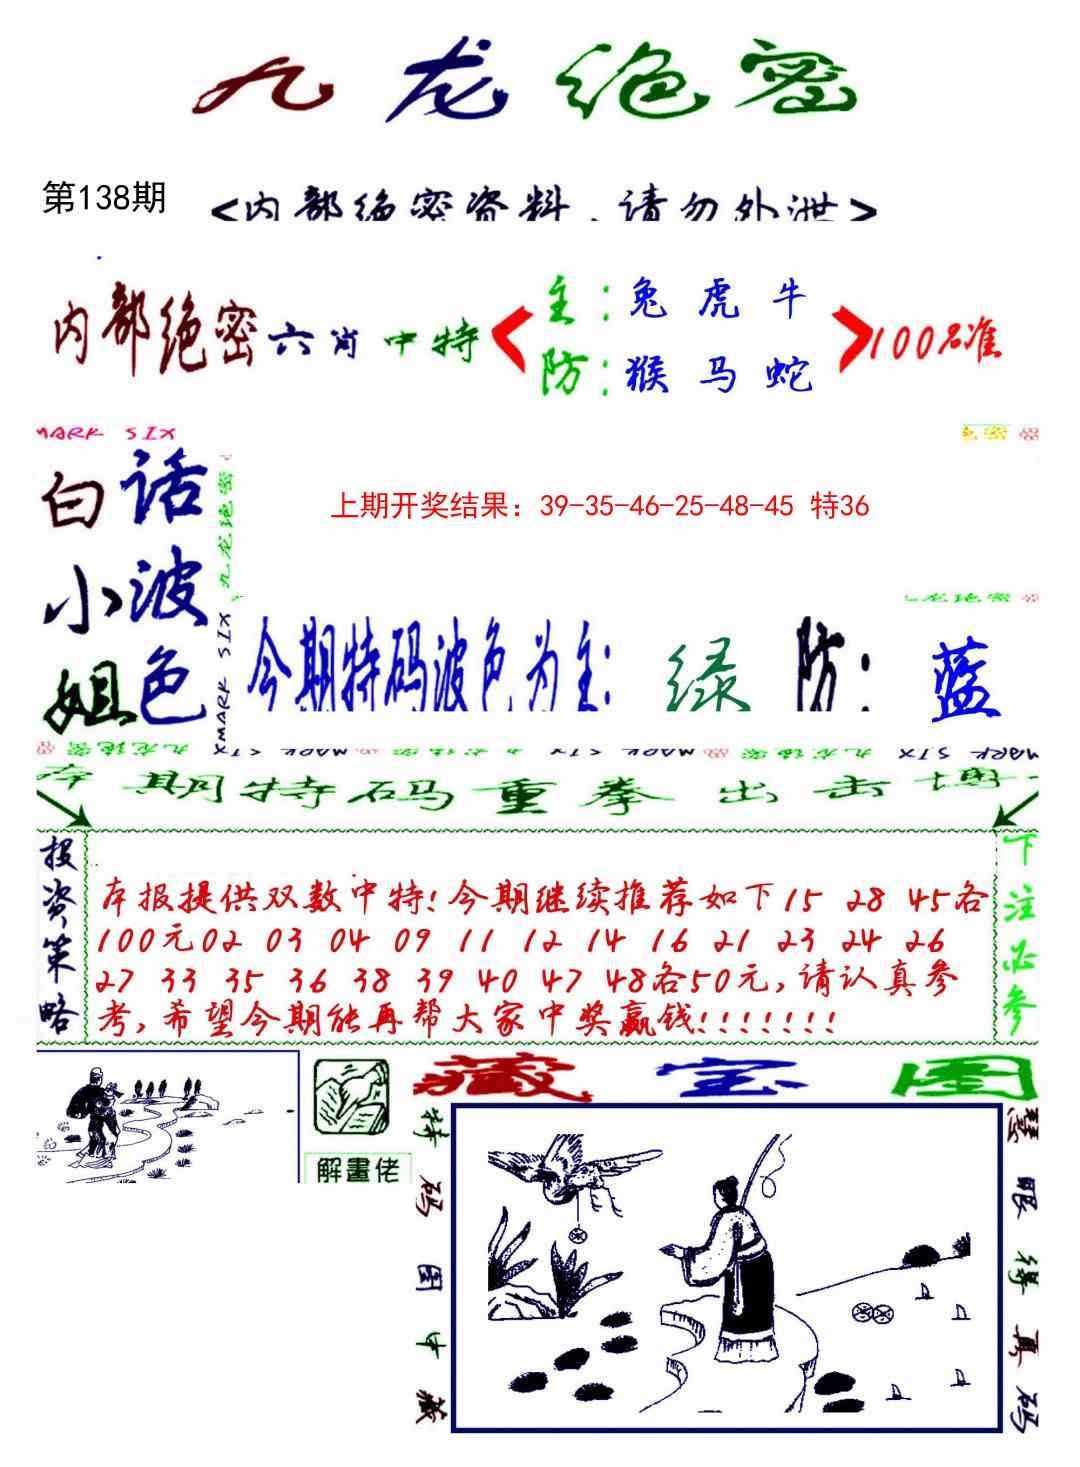 九龙绝密
第138期
<内部绝密资料．请勿外泄>
内部绝密六肖中特
主：兔 虎 牛
防：猴 马 蛇
100%准
MARK SIX
白话
小波
姐色
九龙绝密
MARK SIX
上期开奖结果：39-35-46-25-48-45 特36
九龙绝密
今期特码波色为主：绿 防：蓝
九龙绝密 MARK SIX 九龙绝密 MARK SIX 九龙绝密 MARK SIX
本期特码重拳出击博
投资策略
下注必参
本报提供双数中特!今期继续推荐如下15 28 45各
100元02 03 04 09 11 12 14 16 21 23 24 26
27 33 35 36 38 39 40 47 48各50元,请认真参
考,希望今期能再帮大家中奖赢钱!!!!!!!
解畫佬
藏宝图
特码图中藏
慧眼得真码